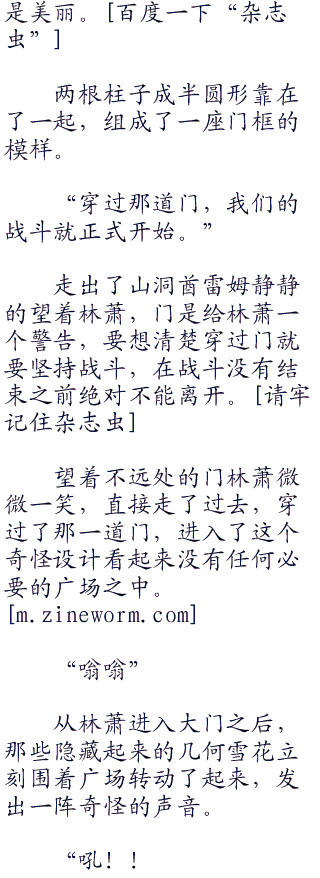 是美丽。[百度一下“杂志
虫”]
两根柱子成半圆形靠在
了一起，组成了一座门框的
模样。
“穿过那道门，我们的
战斗就正式开始。”
走出了山洞酋雷姆静静
的望着林萧，门是给林萧一
个警告，要想清楚穿过门就
要坚持战斗，在战斗没有结
束之前绝对不能离开。[请牢
记住杂志虫]
望着不远处的门林萧微
微一笑，直接走了过去，穿
过了那一道门，进入了这个
奇怪设计看起来没有任何必
要的广场之中。
[m.zineworm.com]
“嗡嗡”
从林萧进入大门之后，
那些隐藏起来的几何雪花立
刻围着广场转动了起来，发
出一阵奇怪的声音。
“吼！！